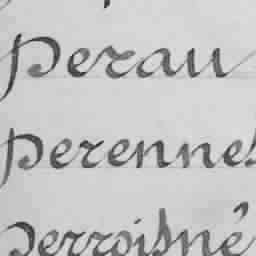 Perau
Perennes
Perroisné